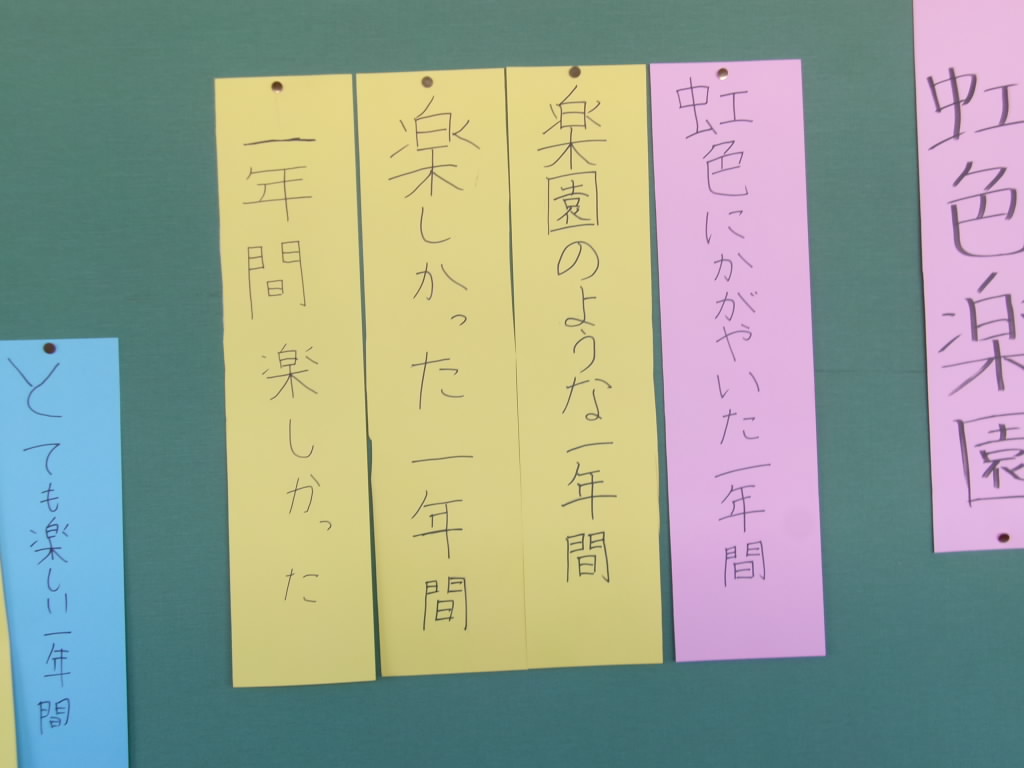 虹色楽園
虹色にかがやいた一年間
楽園のような一年間
楽しかった一年間
一年間楽しかった
とても楽しい一年間